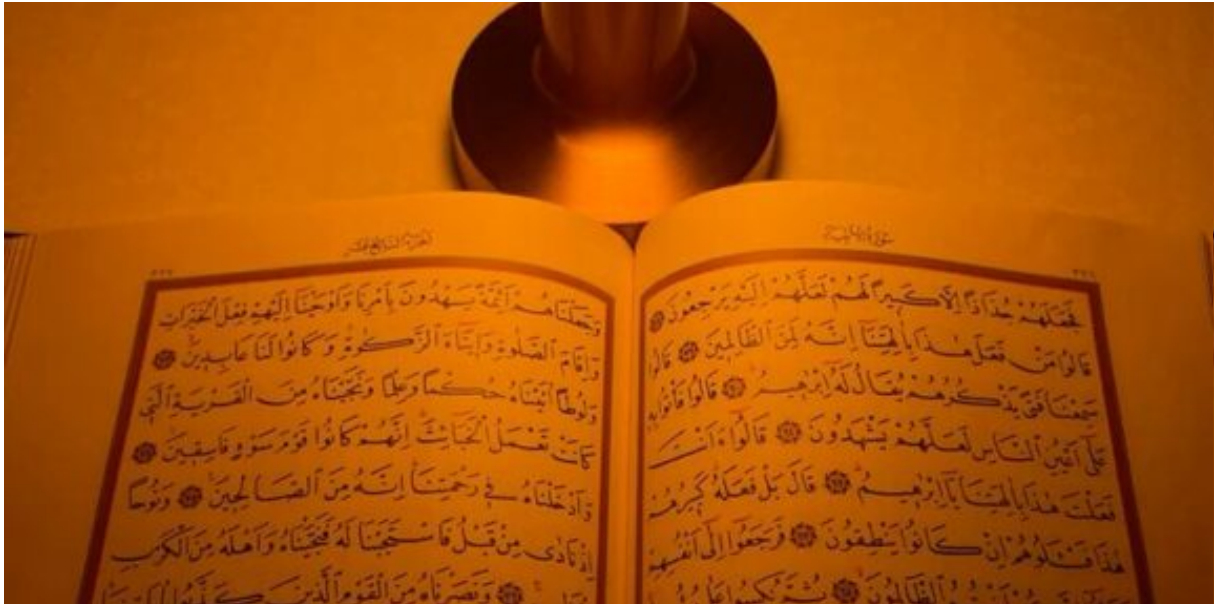 سُورَةُ الْأَنْبِيَاءِ
فَجَعَلَهُمْ جُذَاذًا اِلَّا كَبِيرًا لَهُمْ لَعَلَّهُمْ اِلَيْهِ يَرْجِعُونَ
قَالُوا مَنْ فَعَلَ هٰذَا بِاٰلِهَتِنَا اِنَّهُ لَمِنَ الظَّالِمِينَ قَالُوا
سَمِعْنَا فَتًى يَذْكُرُهُمْ يُقَالُ لَهُ اِبْرٰهِيمُ قَالُوا فَأْتُوا بِهِ
عَلٰى اَعْيُنِ النَّاسِ لَعَلَّهُمْ يَشْهَدُونَ قَالُوا ءَاَنْتَ
فَعَلْتَ هٰذَا بِاٰلِهَتِنَا يَا اِبْرٰهِيمُ قَالَ بَلْ فَعَلَهُ كَبِيرُهُمْ
هٰذَا فَسْـَٔلُوهُمْ اِنْ كَانُوا يَنْطِقُونَ فَرَجَعُوا اِلٰى اَنْفُسِهِمْ
الظَّالِمُونَ ثُمَّ نُكِسُوا عَلٰى
اَلْجُزْءُ السَّابِعَ عَشَرَ
وَجَعَلْنَاهُمْ اَئِمَّةً يَهْدُونَ بِاَمْرِنَا وَاَوْحَيْنَا اِلَيْهِمْ فِعْلَ الْخَيْرَاتِ
وَاِقَامَ الصَّلٰوةِ وَاِيتَاءَ الزَّكٰوةِ وَكَانُوا لَنَا عَابِدِينَ
وَلُوطًا اٰتَيْنَاهُ حُكْمًا وَعِلْمًا وَنَجَّيْنَاهُ مِنَ الْقَرْيَةِ الَّتِي
كَانَتْ تَعْمَلُ الْخَبَائِثَ اِنَّهُمْ كَانُوا قَوْمَ سَوْءٍ فَاسِقِينَ
وَاَدْخَلْنَاهُ فِي رَحْمَتِنَا اِنَّهُ مِنَ الصَّالِحِينَ وَنُوحًا
اِذْ نَادٰى مِنْ قَبْلُ فَاسْتَجَبْنَا لَهُ فَنَجَّيْنَاهُ وَاَهْلَهُ مِنَ الْكَرْبِ
وَنَصَرْنَاهُ مِنَ الْقَوْمِ الَّذِينَ كَذَّبُوا بِاٰيَاتِنَا